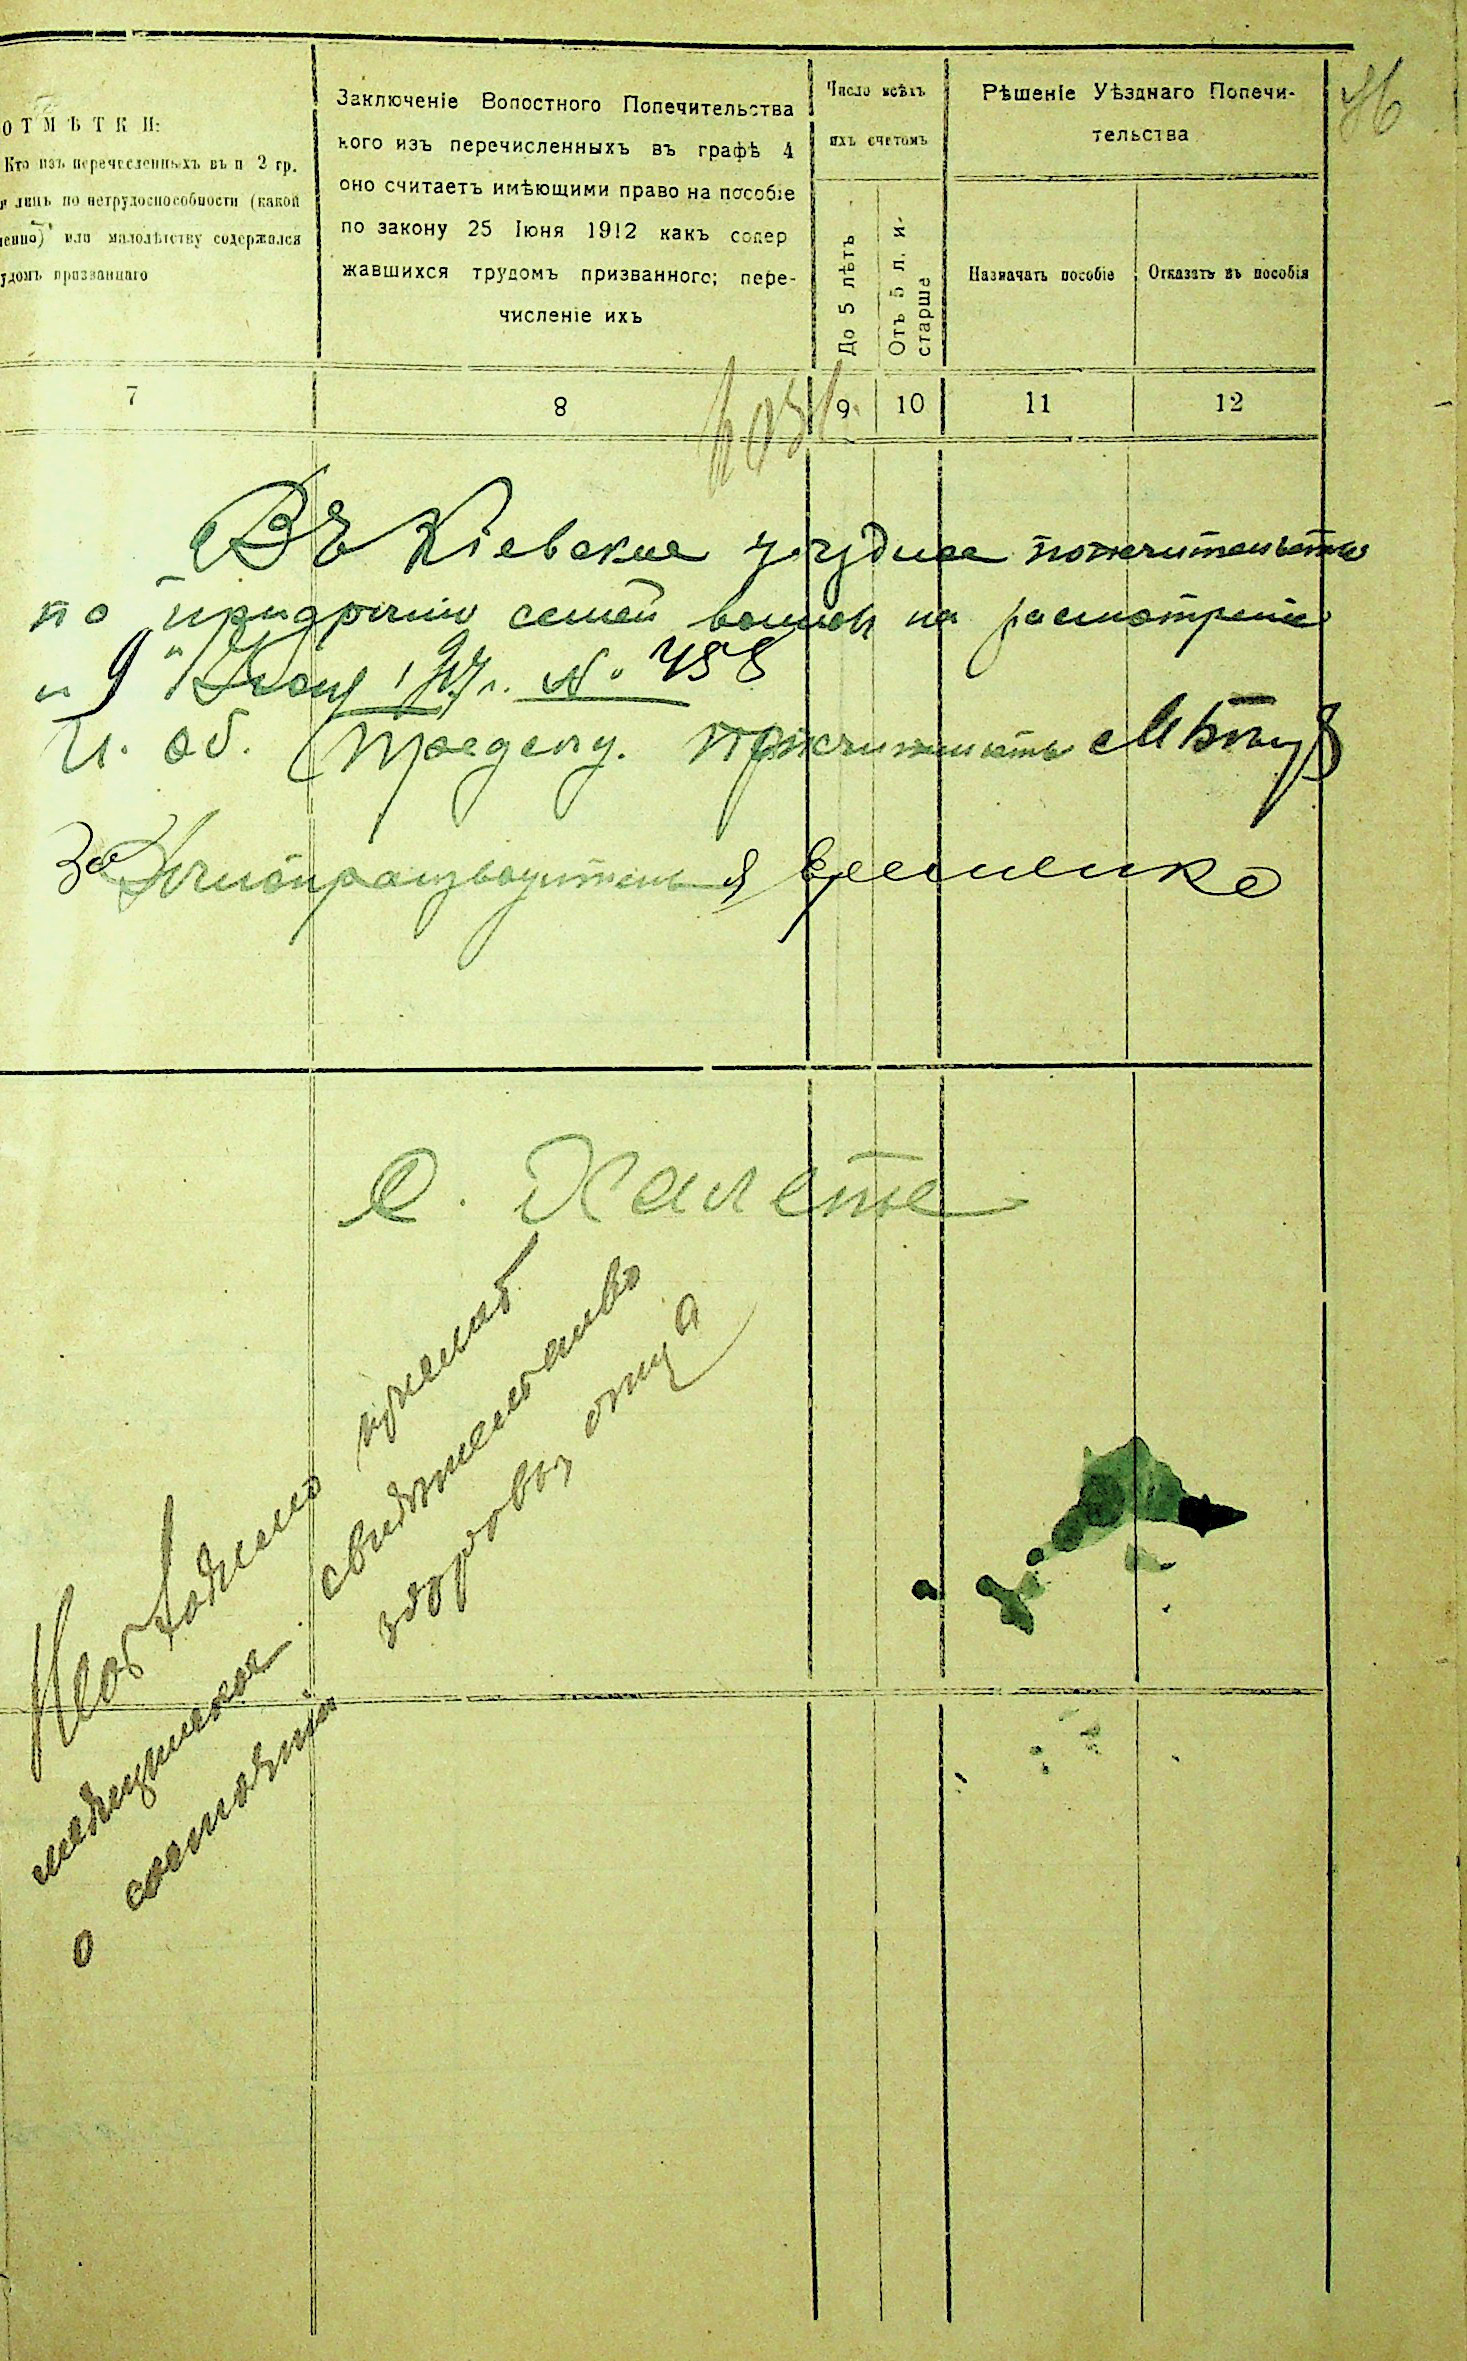 ОТМѢТКИ:
Кто изъ перечесленныхъ въ п 2 гр.
лицъ по нетрудоспособности (какой
менно) или малолѣтству содержался
удомъ призваннаго
Заключеніе Волостного Попечительства
кого изъ перечисленныхъ въ графѣ 4
оно считаетъ имѣющими право на пособіе
по закону 25 Іюня 1912 какъ содер
жавшихся трудомъ призванного; пере-
численіе ихъ
Число всѣхъ
ихъ счетомъ
До 5 лѣтъ
Отъ 5 л. и-
старше
Рѣшеніе Уѣзднаго Попечи-
тельства
Назначать пособіе
Отказать въ пособія
46
7
8
9
10
11
12
Въ Кіевское уѣздное попечительство
по призрѣнію семей воиновъ на расмотреніе
9 1917 г. №
И. об. Предсѣд. Попечительства
За Дѣлопроизводителя Еременко
С. Халепье
Необходимо приложить
медицинское свидѣтельство
о состояніи здоровья отца